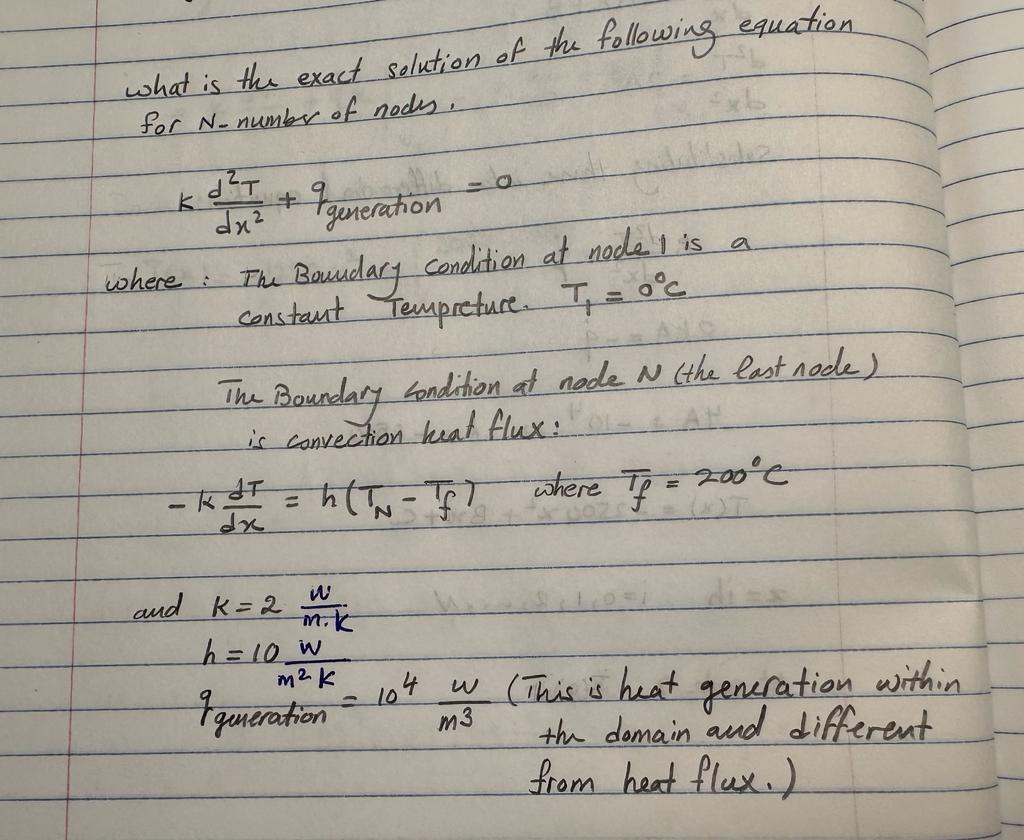 what is the exact solution of the following equation
for N-number of nodes.
k d²T/dx² + q generation = 0
where : The Boundary condition at node 1 is a
constant Tempreture. T₁ = 0°C
The Boundary condition at node N (the last node)
is convection heat flux:
-k dT/dx = h(T_N - T_f) where T_f = 200°C
and k = 2 W/m.K
h = 10 W/m² K
q generation = 10⁴ W/m³ (This is heat generation within
the domain and different
from heat flux.)